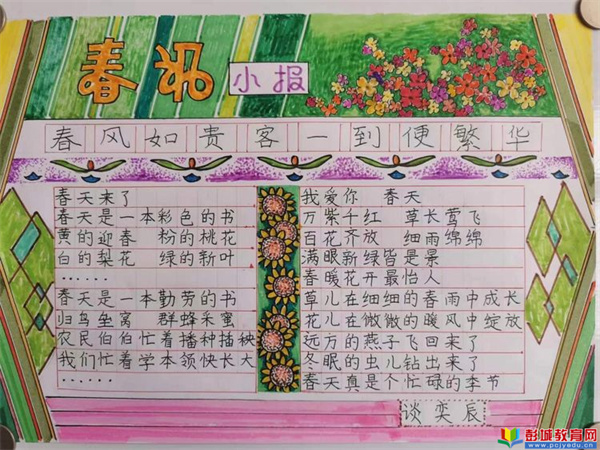 春讯
小报
春风如贵客一到便繁华
春天来了
春天是一本彩色的书
黄的迎春 粉的桃花
白的梨花 绿的新叶
······
春天是一本勤劳的书
归鸟垒窝 群蜂采蜜
农民伯伯忙着播种插秧
我们忙着学本领快长大
······
我爱你 春天
万紫千红 草长莺飞
百花齐放 细雨绵绵
满眼新绿皆是景
春暖花开最怡人
草儿在细细的春雨中成长
花儿在微微的暖风中绽放
远方的燕子飞回来了
冬眠的虫儿钻出来了
春天真是个忙碌的季节
谈奕辰
彭城教育网
www.pcjyedu.cn